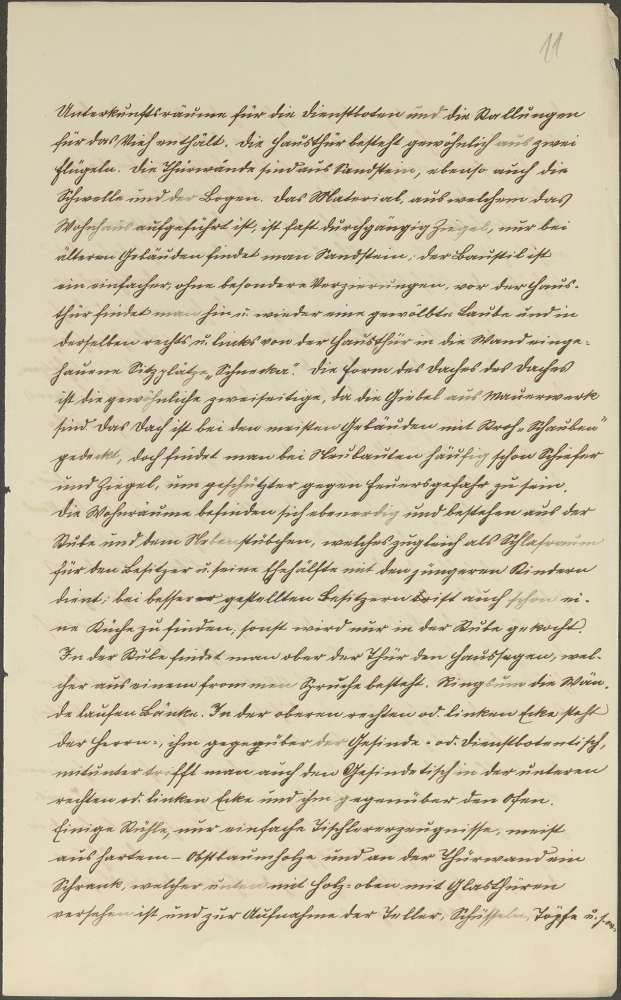 11
Unterkunftsräume für die Dienstboten und die Stallungen
für das Vieh enthält. Die Hausthür besteht gewöhnlich aus zwei
Flügeln. Die Thürwände sind aus Sandstein, ebenso auch die
Schwelle und der Bogen. Das Material, aus welchem das
Wohnhaus aufgeführt ist, ist fast durchgängig Ziegel, nur bei
älteren Gebäuden findet man Sandstein; der Baustil ist
ein einfacher, ohne besondere Verzierungen, vor der Haus-
thür findet man hin u. wieder eine gewölbte Laube und in
derselben rechts u. links von der Hausthür in die Wand einge-
hauene Sitzplätze „Schnecka." Die Form des Daches des Daches
ist die gewöhnliche zweiseitige, da die Giebel aus Mauerwerk
sind. Das Dach ist bei den meisten Gebäuden mit Stroh „Schauben"
gedeckt, doch findet man bei Neubauten häufig schon Schiefer
und Ziegel, um geschützter gegen Feuersgefahr zu sein.
Die Wohnräume befinden sich ebenerdig und bestehen aus der
Stube und dem Nebenstübchen, welches zugleich als Schlafraum
für den Besitzer u. seine Ehehälfte mit den jüngeren Kindern
dient; bei besser gestellten Besitzern trift auch schon ei-
ne Küche zu finden, sonst wird nur in der Stube gekocht.
In der Stube findet man ober der Thür den Haussegen, wel-
cher aus einem frommen Spruche besteht. Ringsum die Wän-
de laufen Bänke. In der oberen rechten od. linken Ecke steht
der Herrn-, ihm gegenüber der Gesinde- od. Dienstbotentisch,
mitunter trifft man auch den Gesindetisch in der unteren
rechten od. linken Ecke und ihm gegenüber den Ofen.
Einige Stühle, nur einfache Tischlererzeugnisse, meist
aus hartem – Obstbaumholze und an der Thürwand ein
Schrank, welcher unten mit Holz- oben mit Glasthüren
versehen ist und zur Aufnahme der Teller, Schüsseln, Töpfe u. s. w.